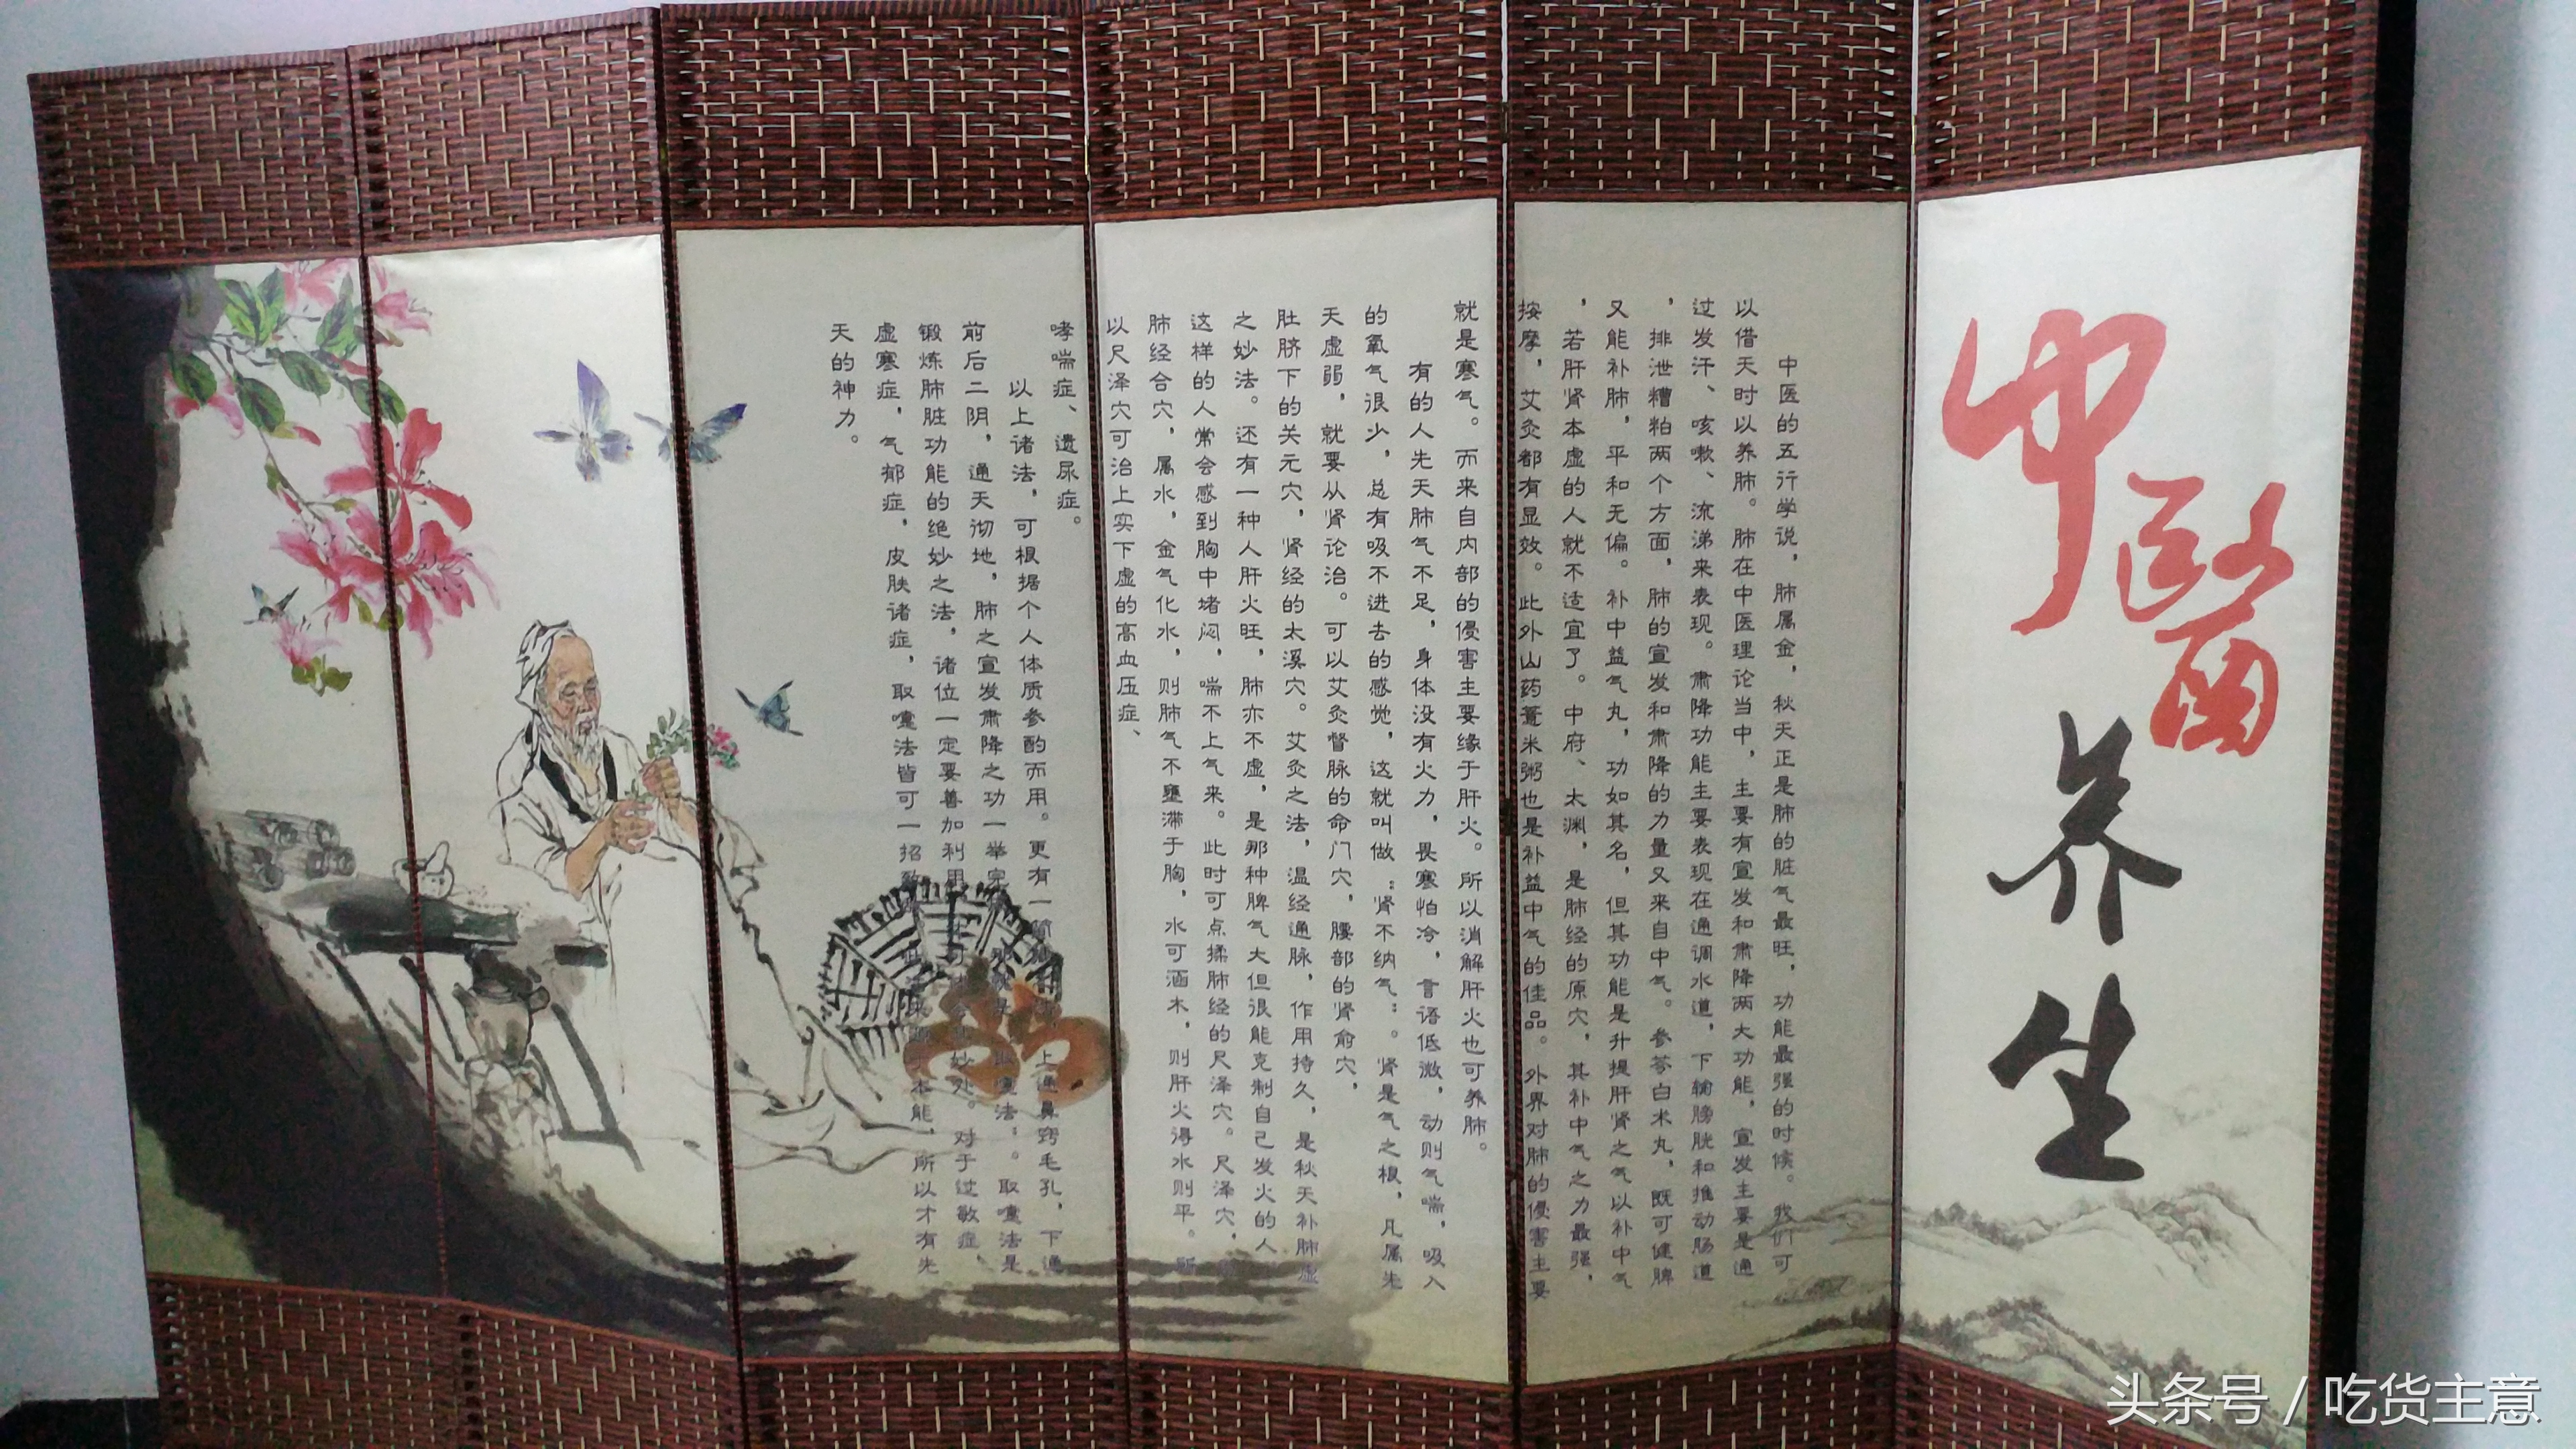 中醫
养生
中医的五行学说，肺属金，秋天正是肺的脏气最旺，功能最强的时候。我们可
以借天时以养肺。肺在中医理论当中，主要有宣发和肃降两大功能，宣发主要是通
过发汗、咳嗽、流涕来表现。肃降功能主要表现在通调水道，下输膀胱和推动肠道
，排泄糟粕两个方面，肺的宣发和肃降的力量又来自中气。参苓白术丸，既可健脾
又能补肺，平和无偏。补中益气丸，功如其名，但其功能是升提肝肾之气以补中气
，若肝肾本虚的人就不适宜了。中府、太渊，是肺经的原穴，其补中气之力最强，
按摩，艾灸都有显效。此外山药薏米粥也是补益中气的佳品。外界对肺的侵害主要
就是寒气。而来自内部的侵害主要缘于肝火。所以消解肝火也可养肺。
有的人先天肺气不足，身体没有火力，畏寒怕冷，言语低微，动则气喘，吸入
的氧气很少，总有吸不进去的感觉，这就叫做：肾不纳气：。肾是气之根，凡属先
天虚弱，就要从肾论治。可以艾灸督脉的命门穴，腰部的肾俞穴，
肚脐下的关元穴，肾经的太溪穴。艾灸之法，温经通脉，作用持久，是秋天补肺虚
之妙法。还有一种人肝火旺，肺亦不虚，是那种脾气大但很能克制自己发火的人
这样的人常会感到胸中堵闷，喘不上气来。此时可点揉肺经的尺泽穴。尺泽穴，
肺经合穴，属水，金气化水，则肺气不壅滞于胸，水可涵木，则肝火得水则平。所
以尺泽穴可治上实下虚的高血压症、
哮喘症、遗尿症。
以上诸法，可根据个人体质参酌而用。更有一简，上通鼻窍毛孔，下通
前后二阴，通天彻地，肺之宣发肃降之功一举完，那就是：取嚏法：。取嚏法是
锻炼肺脏功能的绝妙之法，诸位一定要善加利用，妙处。对于过敏症，
虚寒症，气郁症，皮肤诸症，取嚏法皆可一招致，本能，所以才有先
天的神力。
头条号 / 吃货主意